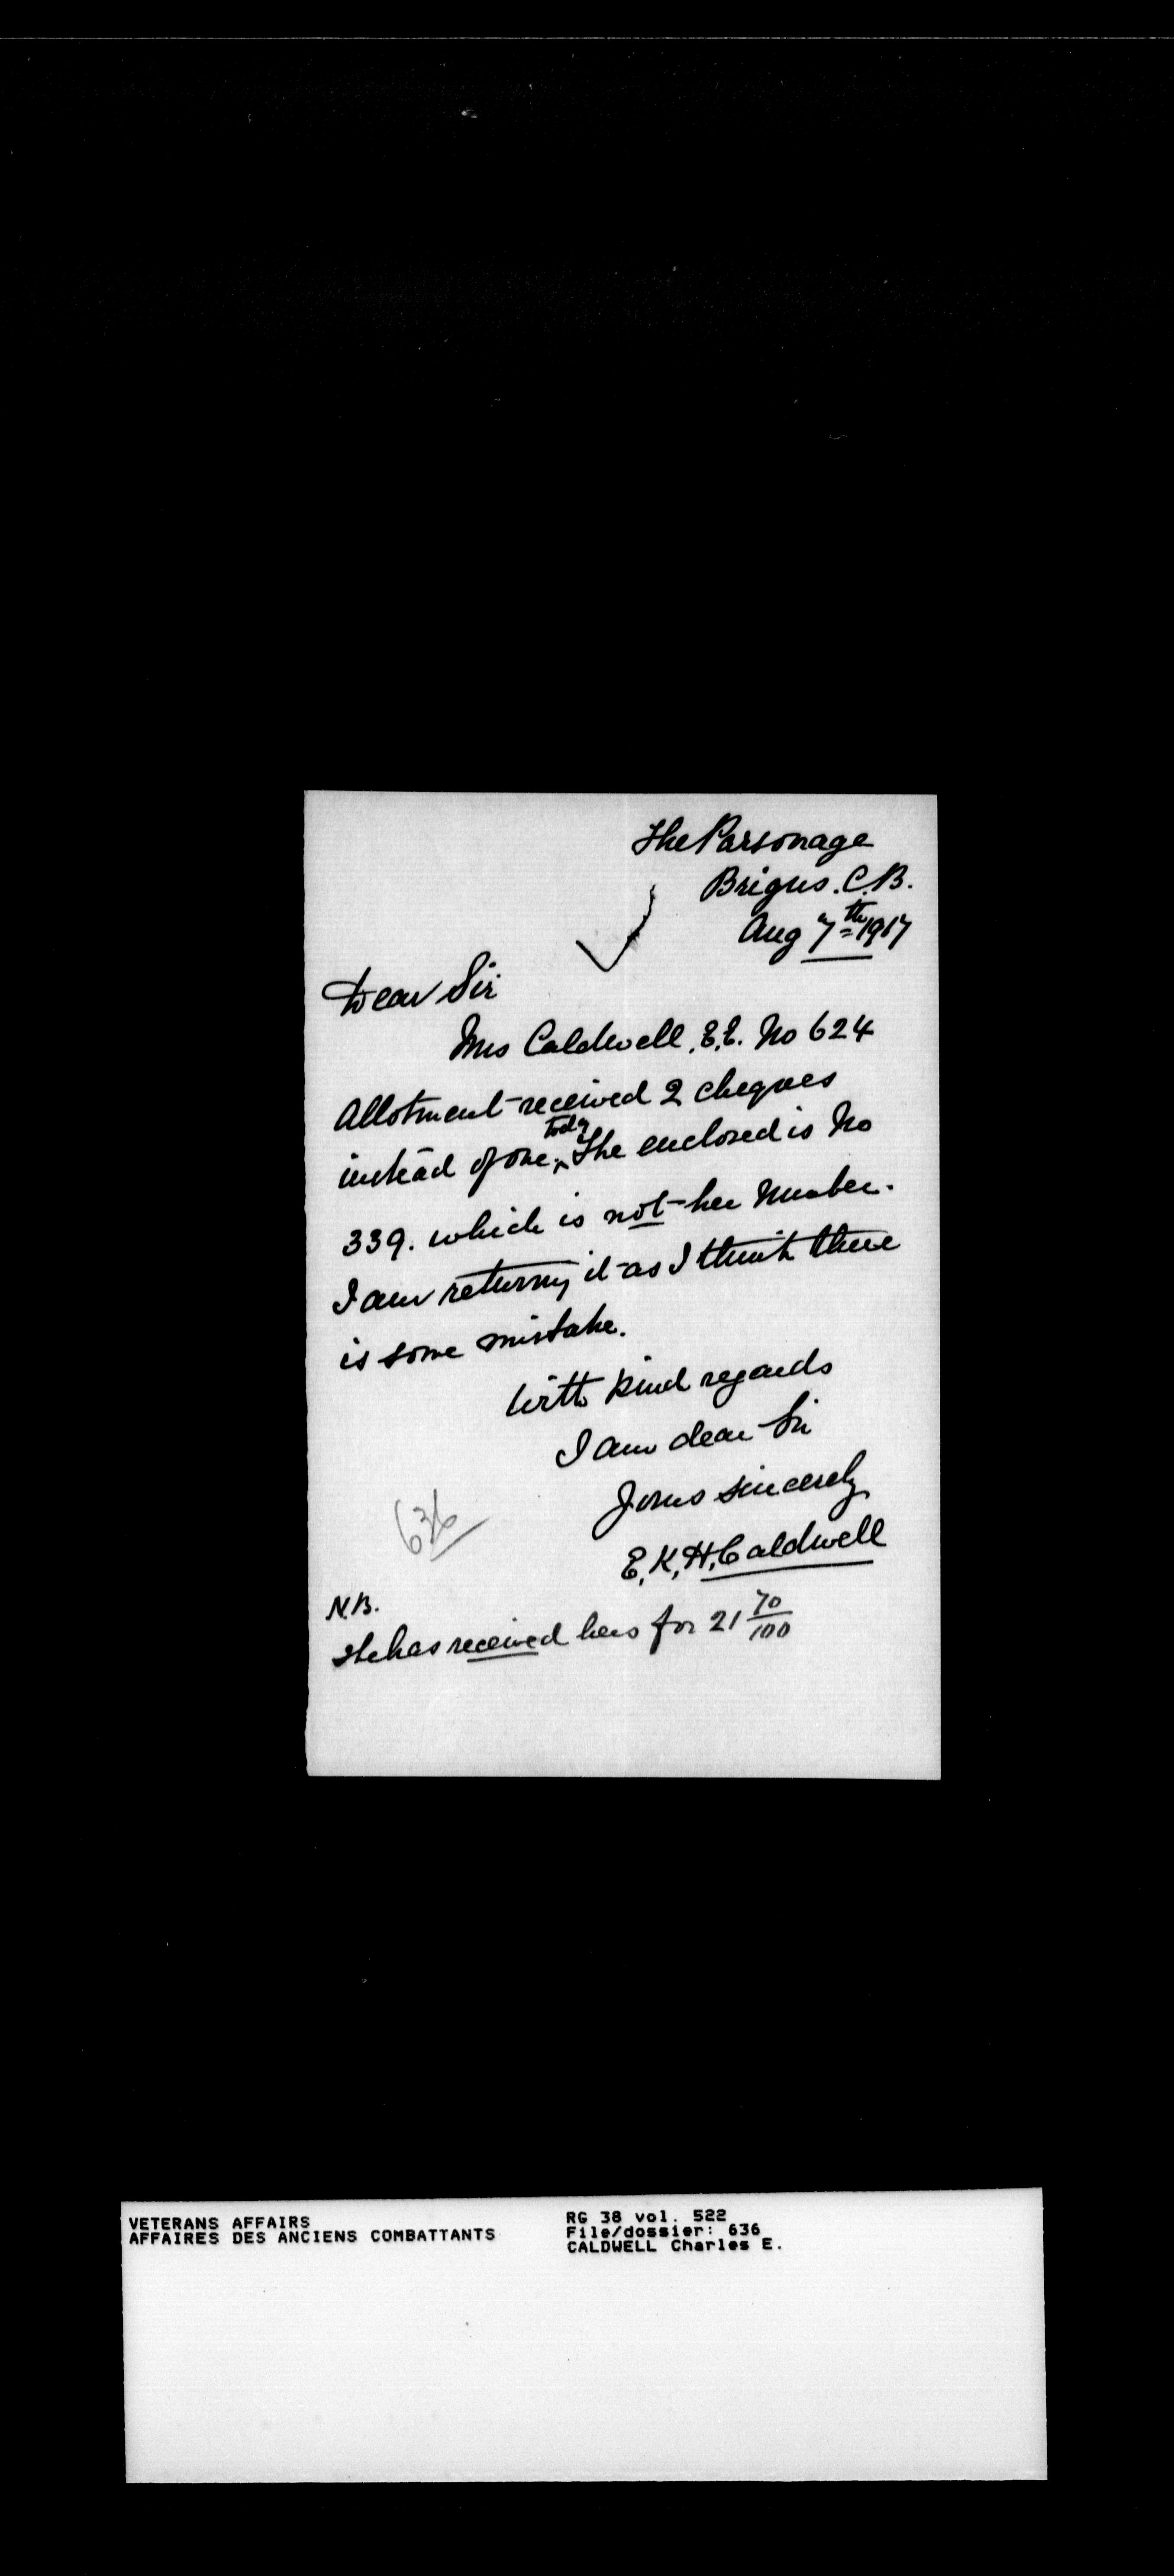 The Parsonage
Brigus. C.B.
Aug 7th 1917
Dear Sir
Mrs Caldwell, E.E. No 624
Allotment received 2 cheques
today
instead of one. The enclosed is No
339. which is not her Number.
I am returnng it as I think there
is some mistake.
With kind regards
I am dear Sir
Yours sincerely
E.K.H. Caldwell
636
N.B.
She has received hers for 21 70/100
VETERANS AFFAIRS
AFFAIRES DES ANCIENS COMBATTANTS
RG 38 vol. 522
File/dossier: 636
CALDWELL Charles E.